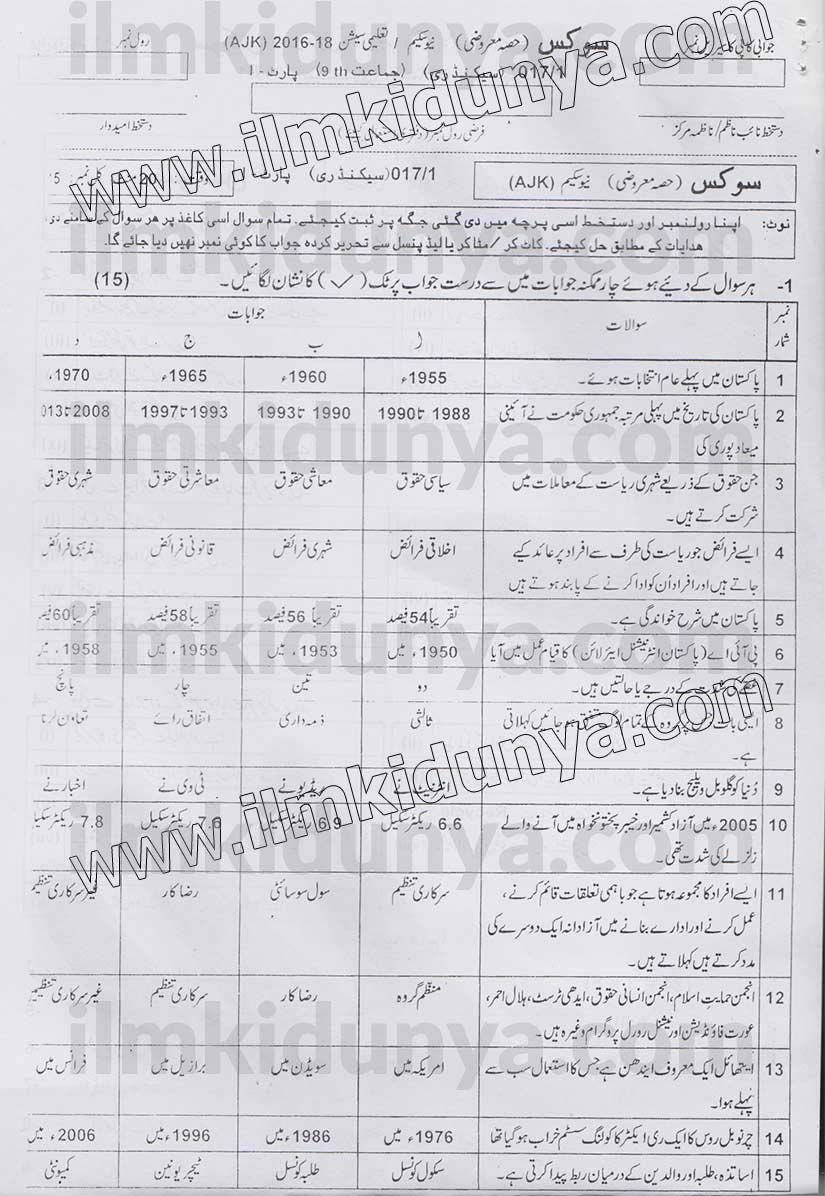 جوابی کاپی کا سیریل نمبر
سوکس (حصہ معروضی) نیو سکیم / تعلیمی سیشن 18-2016 (AJK)
رول نمبر
017/1 (سیکنڈری) (جماعت 9th) پارٹ - I
دستخط نائب ناظم / ناظمہ مرکز
فرضی رول نمبر
دستخط امیدوار
سوکس (حصہ معروضی) نیو سکیم (AJK)
017/1 (سیکنڈری) پارٹ -
20 کل نمبر 15
نوٹ: اپنا رولنمبر اور دستخط اسی پرچہ میں دی گئی جگہ پر ثبت کیجئے۔ تمام سوال اسی کاغذ پر ہر سوال کے سامنے دی
ہدایات کے مطابق حل کیجئے۔ کاٹ کر / مٹا کر یا لیڈ پنسل سے تحریر کردہ جواب کا کوئی نمبر نہیں دیا جائے گا۔
1- ہر سوال کے دئیے ہوئے چار ممکنہ جوابات میں سے درست جواب پر ٹک (✓) کا نشان لگائیں۔ (15)
نمبر شمار سوالات جوابات
ا ب ج د
1 پاکستان میں پہلے عام انتخابات ہوئے۔ 1955ء 1960ء 1965ء 1970ء
2 پاکستان کی تاریخ میں پہلی مرتبہ جمہوری حکومت نے آئینی 1988 تا 1990 1990 تا 1993 1993 تا 1997 2008 تا 013
میعاد پوری کی
3 جن حقوق کے ذریعے شہری ریاست کے معاملات میں سیاسی حقوق معاشی حقوق معاشرتی حقوق شہری حقوق
شرکت کرتے ہیں۔
4 ایسے فرائض جو ریاست کی طرف سے افراد پر عائد کیے اخلاقی فرائض شہری فرائض قانونی فرائض مذہبی فرائض
جاتے ہیں اور افراد اُن کو ادا کرنے کے پابند ہوتے ہیں
5 پاکستان میں شرح خواندگی ہے۔ تقریباً 54 فیصد تقریباً 56 فیصد تقریباً 58 فیصد تقریباً 60 فیصد
6 پی آئی اے (پاکستان انٹرنیشنل ایئر لائن) کا قیام عمل میں آیا 1950ء میں 1953ء میں 1955ء میں 1958ء میں
7 کے درجے یا حالتیں ہیں۔ دو تین چار پانچ
8 ایسی بات جس پر گروہ کے تمام لوگ متفق ہو جائیں کہلاتی ثالثی ذمہ داری اتفاق رائے تعاون کرنا
ہے۔
9 دُنیا کو گلوبل ویلیج بنا دیا ہے۔ انٹرنیٹ نے ریڈیو نے ٹی وی نے اخبار نے
10 2005ء میں آزاد کشمیر اور خیبر پختونخواہ میں آنے والے 6.6 ریکٹر سکیل 6.9 ریکٹر سکیل 7.6 ریکٹر سکیل 7.8 ریکٹر سکیل
زلزلے کی شدت تھی۔
11 ایسے افراد کا مجموعہ ہوتا ہے جو باہمی تعلقات قائم کرنے، سرکاری تنظیم سول سوسائٹی رضا کار غیر سرکاری تنظیم
عمل کرنے اور ادارے بنانے میں آزادانہ ایک دوسرے کی
مدد کرتے ہیں کہلاتے ہیں۔
12 انجمن حمایت اسلام، انجمن انسانی حقوق، ایدھی ٹرسٹ، ہلال احمر، منظم گروہ رضا کار سرکاری تنظیم غیر سرکاری تنظیم
عورت فاؤنڈیشن اور نیشنل رورل پروگرام وغیرہ ہیں۔
13 ایتھائل ایک معروف ایندھن ہے جس کا استعمال سب سے امریکہ میں سویڈن میں برازیل میں فرانس میں
پہلے ہوا۔
14 چرنوبل روس کا ایک ری ایکٹر کا کولنگ سسٹم خراب ہو گیا تھا 1976ء میں 1986ء میں 1996ء میں 2006ء میں
15 اساتذہ، طلبہ اور والدین کے درمیان ربط پیدا کرتی ہے۔ سکول کونسل طلبہ کونسل ٹیچر یونین کمیونٹی
www.ilmkidunya.com
www.ilmkidunya.com
ilmkidunya.com
ilmkidunya.com
ilmkidunya.com
ilmkidunya.com
ilmkidunya.com